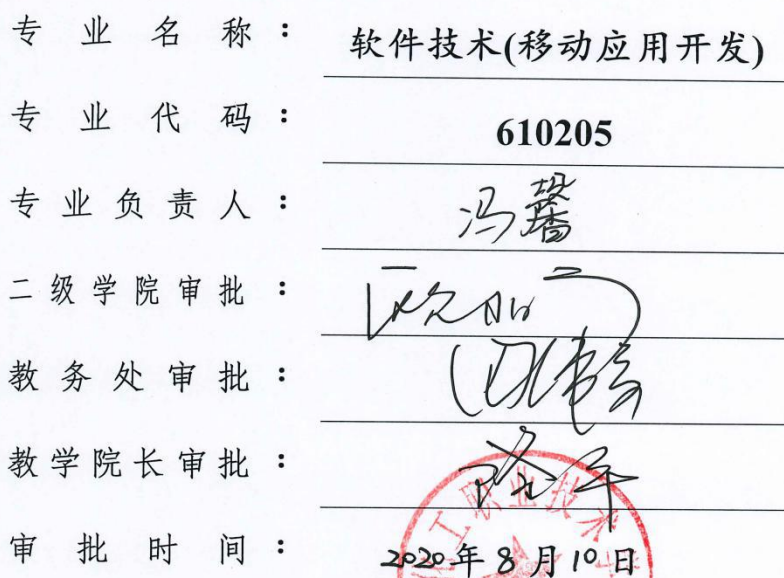 专业名称： 软件技术(移动应用开发)
专业代码： 610205
专业负责人： 冯馨
二级学院审批：
教务处审批：
教学院长审批：
审批时间： 2020年8月10日
工职业技术